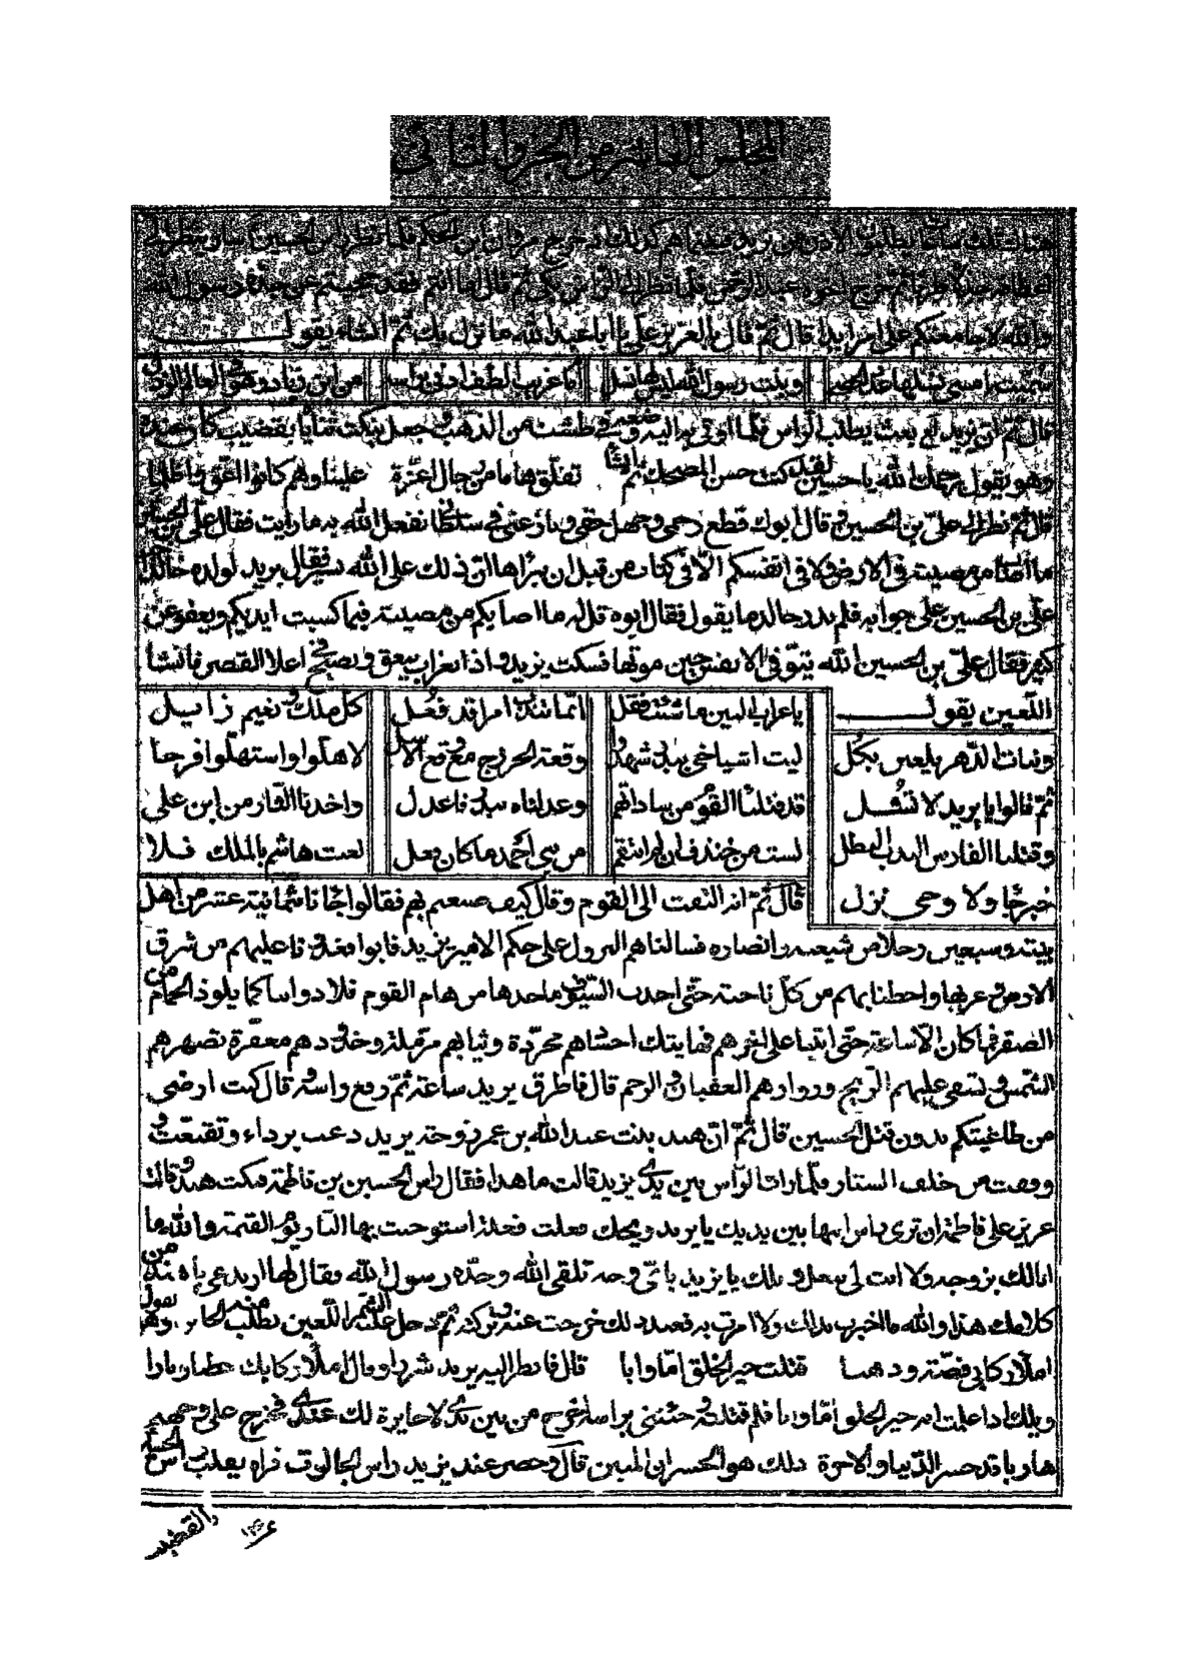 المجلس العاشر من الجزء الثاني
ثلث ساعات يطلبون الاذن من يزيد فبينما هم كذلك اذ خرج مروان ابن الحكم فلما نظر راس الحسين
جذلا طربا ثم خرج اخوه عبد الرحمن فلما نظر الى الراس بكى ثم قال اما انتم فقد حجبتم عن جده رسول الله
والله لا جامعتكم على امر ابدا قال ثم قال بالعزيز علي يا ابا عبد الله ما نزل بك ثم انشاء يقول
سمية امسى نسلها عدد الحصى وبنت رسول الله ليس لها نسل
قال ثم ان يزيد لع بعث يطلب الراس فلما اوتي به اليه وضعه في طشت من الذهب وجعل ينكت ثناياه بقضيب كان عنده
وهو يقول رحمك الله يا حسين لقد كنت حسن المضحك ثم انشا نفلق هاما من رجال اعزة علينا وهم كانوا اعق واظلما
قال ثم نظر الى علي بن الحسين وقال ابوك قطع رحمي وجهل حقي ونازعني في سلطاني ففعل الله به ما رايت فقال علي بن الحسين
ما اصاب من مصيبة في الارض ولا في انفسكم الا في كتاب من قبل ان نبراها ان ذلك على الله يسير فقال يزيد لولده خالد
علي بن الحسين على جوابه فلم يدر خالد ما يقول فقال ابوه قل له ما اصابكم من مصيبة فبما كسبت ايديكم ويعفو عن
كثير فقال علي بن الحسين الله يتوفى الانفس حين موتها فسكت يزيد واذا بغراب ينعق ويصيح في اعلا القصر فانشا
اللعين يقول
يا غراب البين ما شئت فقل انما تندب امرا قد فعل كل ملك ونعيم زايل
وبنات الدهر يلعبن بكل ليت اشياخي ببدر شهدوا وقعة الخزرج مع وقع الاسل لاهلوا واستهلوا فرحا
ثم قالوا يا يزيد لا تشل قد قتلنا القوم من ساداتهم وعدلناه ببدر فاعتدل واخذنا الثار من ابن علي
وقتلنا الفارس البطل لست من خندف ان لم انتقم من بني احمد ما كان فعل لعبت هاشم بالملك فلا
خبر جاء ولا وحي نزل قال ثم انه التفت الى القوم وقال كيف صنعتم بهم فقالوا جائنا ثمانية عشر من اهل
بيته وسبعين رجلا من شيعته وانصاره فسالناهم النزول على حكم الامير يزيد فابوا فغدونا عليهم من شرق
الارض وغربها واحطنا بهم من كل ناحية حتى اخذت السيوف ماخذها من هام القوم فلاذوا بنا كما يلوذ الحمام من
الصقر فما كان الا ساعة حتى اتينا على اخرهم فهاتيك اجسادهم مجردة وثيابهم مرملة وخدودهم معفرة تصهرهم
الشمس وتسفى عليهم الريح وزوارهم العقبان والرخم قال فاطرق يزيد ساعة ثم رفع راسه وقال كنت ارضى
من طاعتكم بدون قتل الحسين قال ثم ان هند بنت عبد الله بن عمر زوجة يزيد دعت برداء وتقنعت و
وقفت من خلف الستار فلما رات الراس بين يدي يزيد قالت ما هذا فقال راس الحسين بن فاطمة فبكت هند وقالت
عزيز على فاطمة ان ترى راس ابنها بين يديك يا يزيد ويحك فعلت فعلة استوجبت بها النار يوم القيمة والله ما
انا لك بزوجة ولا انت لي ببعل ويلك يا يزيد باي وجه تلقى الله وجده رسول الله فقال لها ارتدعي يا هند من
كلامك هذا والله ما اخبرت بذلك ولا امرت به فعند ذلك خرجت عنه وتركته ثم دخل عليه الشمر اللعين يطلب منه الجائزة وهو يقول
املأ ركابي فضة وذهبا قتلت خير الخلق اما وابا قال فانظر اليه يزيد شزرا وقال املأ ركابك حطبا ونارا
ويلك اذا علمت انه خير الخلق اما وابا فلم قتلته وجئتني براسه اخرج من بين يدي لا جايزة لك عندي فخرج على وجهه
هاربا قد خسر الدنيا والاخرة ذلك هو الخسران المبين قال وحضر عند يزيد راس الجالوت فراه يقلب راس الحسين
بالقضيب